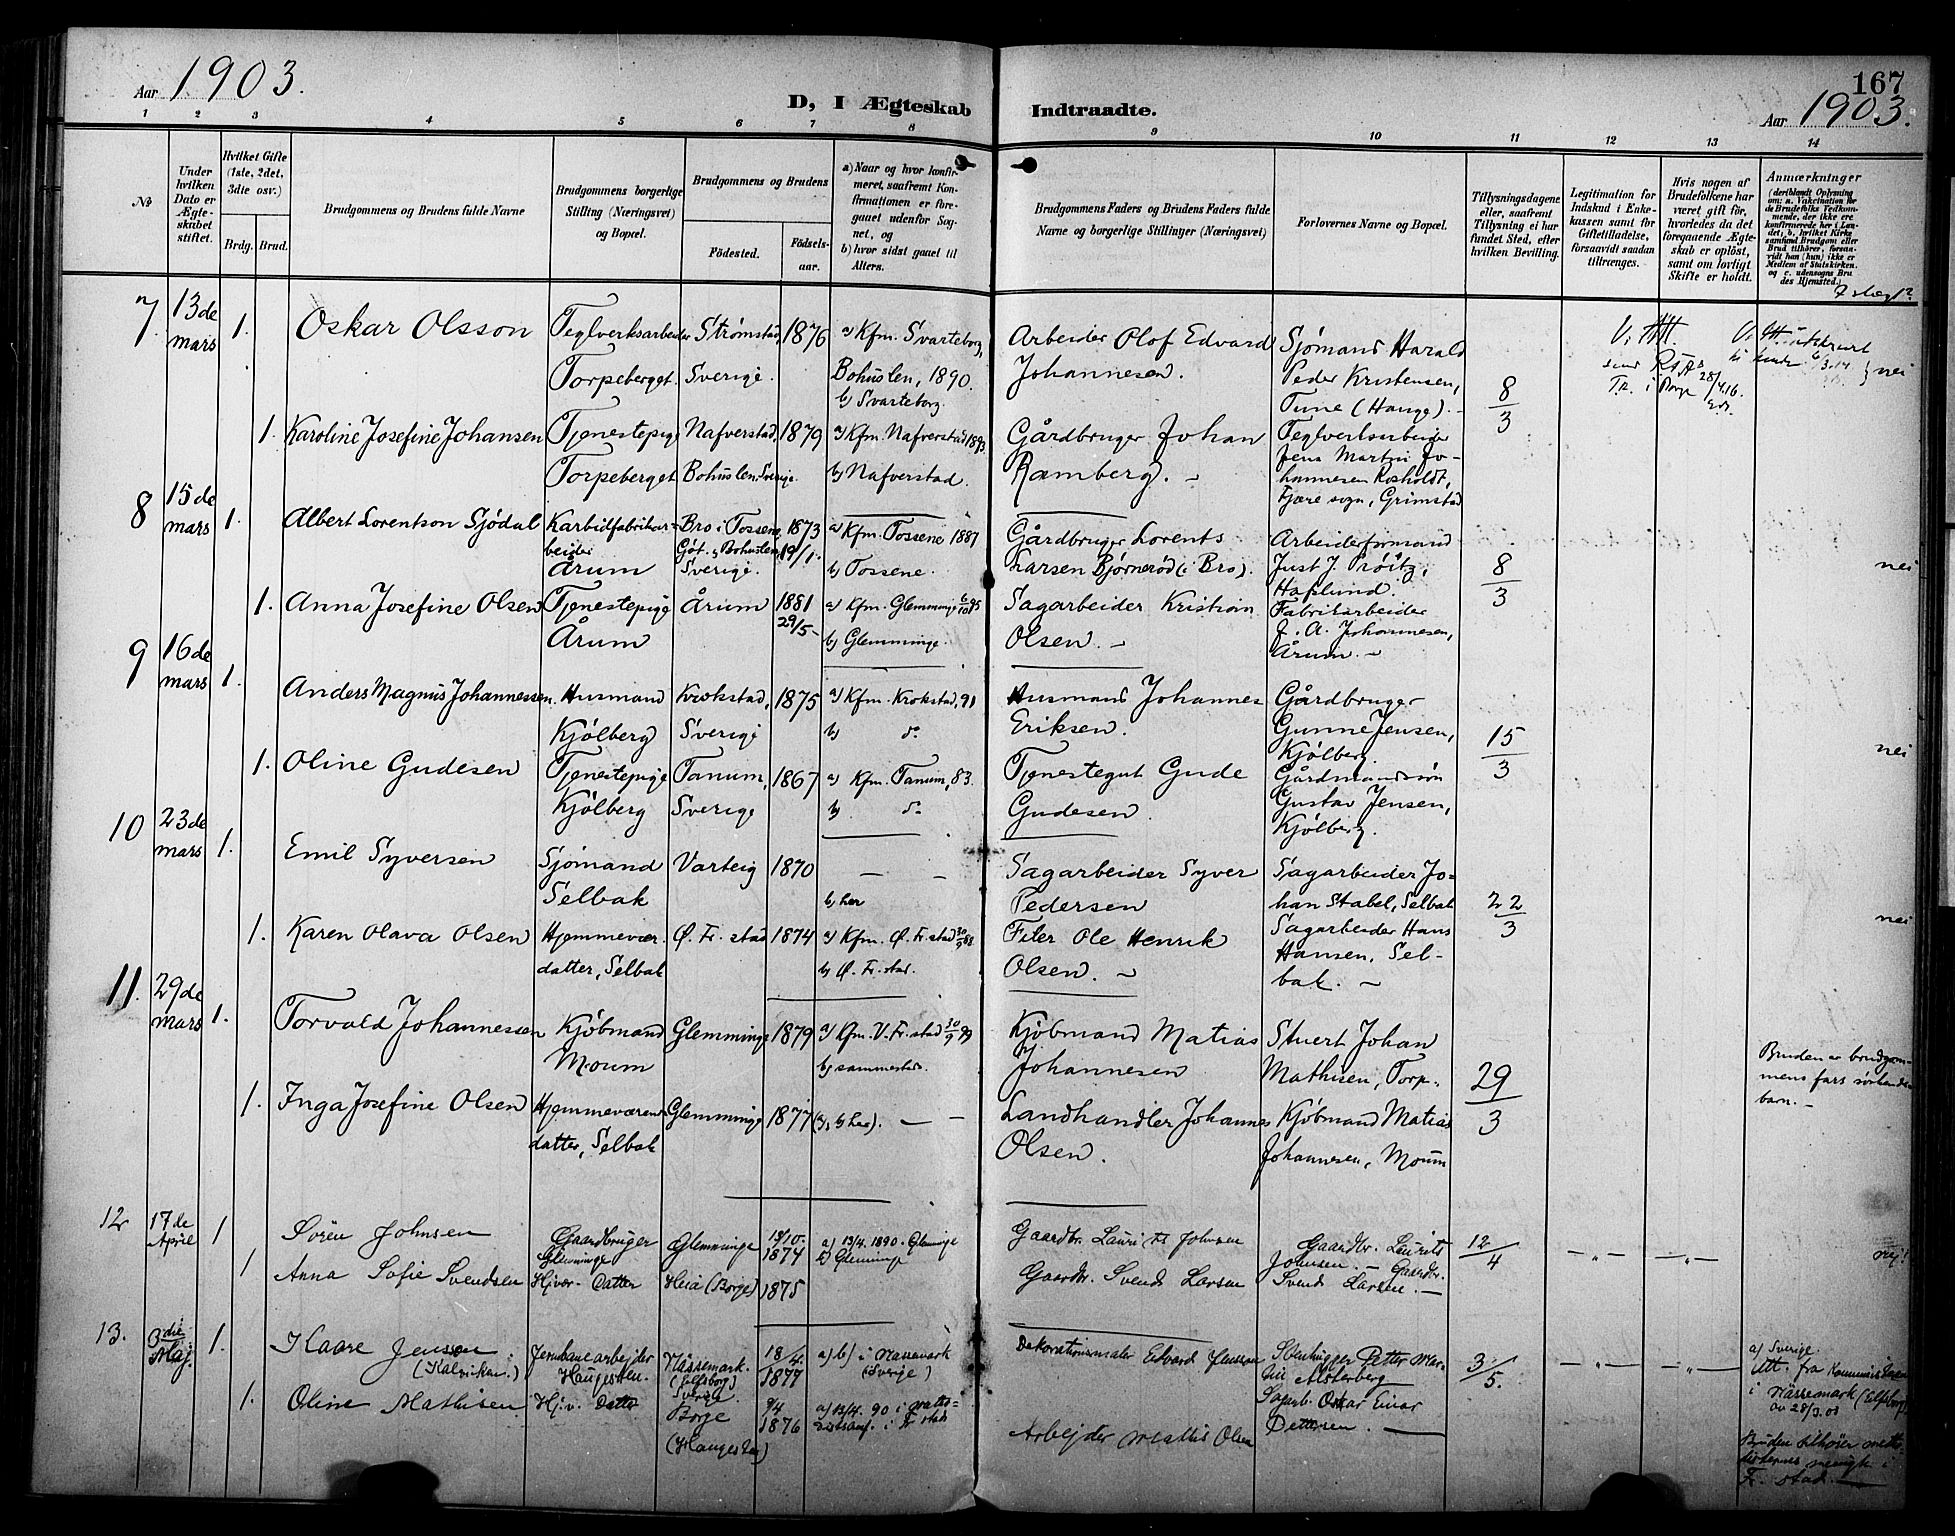 Aar 1903.
D, I Ægteskab Indtraadte.
167
Aar 1903.
1 2 3 4 5 6 7 8 9 10 11 12 13 14
No
Under hvilken Dato er Ægteskabet stiftet.
Hvilket Gifte (1ste, 2det, 3die osv.)
Brdg. Brud.
Brudgommens og Brudens fulde Navne
Brudgommens borgerlige Stilling (Næringsvei) og Bopæl.
Brudgommens og Brudens
Fødested. Fødselsaar.
a) Naar og hvor konfirmeret, saafremt Konfirmationen er foregaaet udenfor Sognet, og
b) hvor sidst gaaet til Alters.
Brudgommens Faders og Brudens Faders fulde Navne og borgerlige Stillinger (Næringsvei)
Forlovernes Navne og Bopæl.
Tillysningsdagene eller, saafremt Tillysning ei har fundet Sted, efter hvilken Bevilling.
Legitimation for Indskud i Enkekassen samt for Giftetilladelse, forsaavidt saadan tiltrænges.
Hvis nogen af Brudefolkene har været gift før, hvorledes da det foregaaende Ægteskab er opløst, samt om lovligt Skifte er holdt.
Anmærkninger
(deriblandt Oplysning om: a. Vaccination for de Brudefolks Vedkommende, der ikke ere konfirmerede her i Landet; b. hvilket Kirkesamfund Brudgom eller Brud tilhører, forsaavidt han (hun) ikke er Medlem af Statskirken, og c. udensogns Brudes Hjemsted.)
7 13de mars 1. Oskar Olsson Teglverksarbeider Torpeberget. Strømstad, Sverige. 1876 a) Kfm. Svarteborg, Bohuslen, 1890. b) Svarteborg Arbeider Olof Edvard Johannesen. Sjømand Harald Peder Kristensen, Tune (Hauge). 8/3 nei
1. Karoline Josefine Johansen Tjenestepige Torpeberget Nafverstad, Bohuslen, Sverige. 1879 a) Kfm. Nafverstad 1893. b) Nafverstad. Gårdbruger Johan Ramberg. Teglverksarbeider Jens Martin Johannesen Rosholdt, Fjære sogn, Grimstad
8 15de mars 1. Albert Lorentson Sjödal Karbidfabrikarbeider Årum Bro i Tossene, Göt. & Bohuslen, Sverige. 1873 19/1. a) Kfm. Tossene 1887 b) Tossene. Gårdbruger Lorents Larsen Bjørnerød (i Bro). Arbeiderformand Just J. Prøitz, Hafslund. 8/3 nei
1. Anna Josefine Olsen Tjenestepige Årum Årum 1881 29/5 a) Kfm. Glemminge 6/10 95 b) Glemminge. Sagarbeider Kristian Olsen. Fabrikarbeider J. A. Johannesen, Årum.
9 16de mars 1. Anders Magnus Johannessen. Husmand Kjølberg Krokstad, Sverige 1875 a) Kfm. Krokstad, 91 b) do Husmand Johannes Eriksen. Gårdbruger Gunne Jensen, Kjølberg. 15/3 nei
1. Oline Gudesen Tjenestepige Kjølberg Tanum, Sverige 1867 a) Kfm. Tanum, 83. b) do Tjenestegut Gude Gudesen. Gårdmandssøn Gustav Jensen, Kjølberg.
10 23de mars 1. Emil Syversen Sjømand Selbak Varteig 1870 b) her Sagarbeider Syver Pedersen Sagarbeider Johan Stabel, Selbak 22/3 nei
1. Karen Olava Olsen Hjemmevær. datter, Selbak Ø. Fr.stad 1874 a) Kfm. Ø. Fr.stad 30/9 88 b) Ø. Fr.stad. Filer Ole Henrik Olsen. Sagarbeider Hans Hansen, Selbak.
11. 29de mars 1. Torvald Johannessen Kjøbmand Moum Glemminge 1879 a) Kfm. V. Fr.stad 30/9 b) sammesteds. Kjøbmand Matias Johannesen Stuert Johan Mathisen, Torp. 29/3 Bruden er brudgommens fars søskendebarn.
1. Inga Josefine Olsen Hjemmeværende datter, Selbak Glemminge 1877 (a, b) her). Landhandler Johannes Olsen. Kjøbmand Matias Johannesen, Moum
12 17de April 1 Sören Johnsen Gaardbruger Glemminge Glemminge 1874 a) 13/4. 1890. Glemminge b) Glemminge Gaardbr. Laurits Johnsen Gaardbr. Laurits Johnsen. 12/4 nej!
1 Anna Sofie Svendsen Hjvær. Datter Heia (Borge) 1875 Gaardbr. Svend Larsen Gaardbr. Svend Larsen.
13. 3die Maj. 1. Kaare Jensson (Kalviken.) Jernbanearbejder Haugesten. Nässemark. (Elfsborg) Sverige. 18/4. 1877 a) b) i Nässemark (Sverige) Dekorationsmaler Edvard Jensson Stenhugger Petter Martin Alsterberg 3/5. a) Sverige. Att. fra Kommunistexsen i Nässemark (Elfsborg) av 28/3.03
1. Oline Mathisen Hjv. Datter Borge (Haugesten) 9/4 1876 a) 13/4. 90 i metodistsamf. i Fr.stad Arbejder Mathis Olsen Sagarb. Oskar Einar Pettersen. Bruden tilhører methodisternes menigh. i Fr.stad.